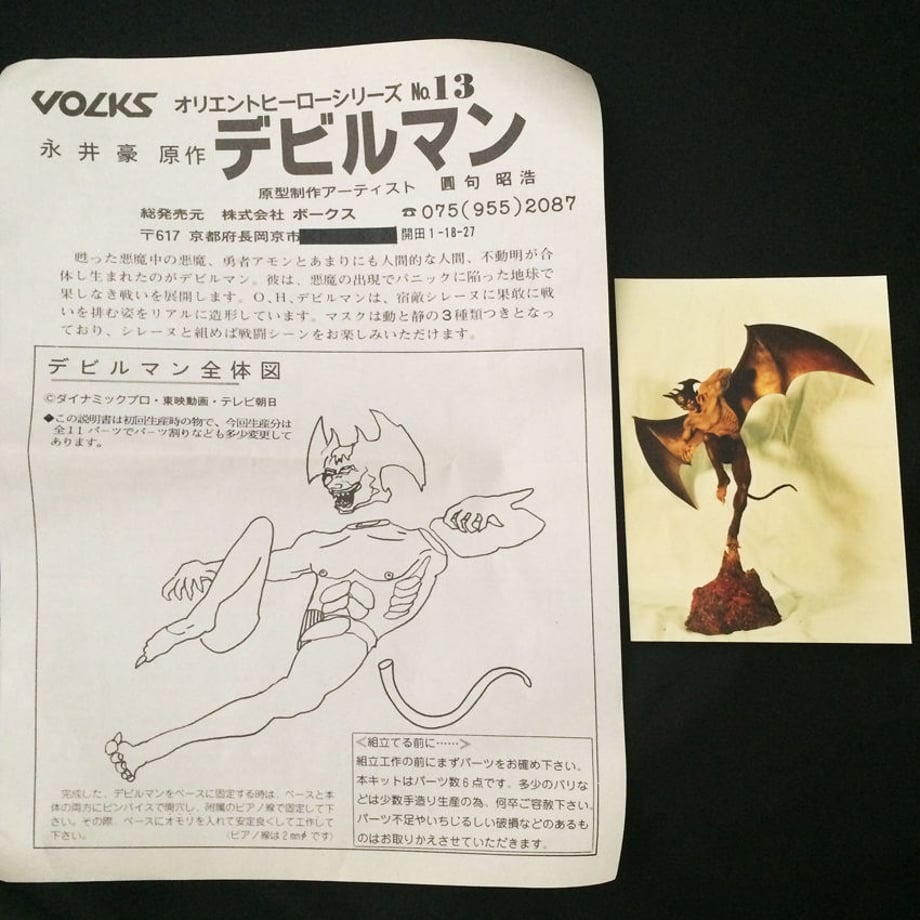 VOLKS オリエントヒーローシリーズ No.13
永井豪 原作 デビルマン
原型制作アーティスト 圓句昭浩
総発売元 株式会社 ボークス ☎075(955)2087
〒617 京都府長岡京市 開田1-18-27
甦った悪魔中の悪魔、勇者アモンとあまりにも人間的な人間、不動明が合
体し生まれたのがデビルマン。彼は、悪魔の出現でパニックに陥った地球で
果しなき戦いを展開します。O、H、デビルマンは、宿敵シレーヌに果敢に戦
いを挑む姿をリアルに造形しています。マスクは動と静の3種類つきとなっ
ており、シレーヌと組めば戦闘シーンをお楽しみいただけます。
デビルマン全体図
©ダイナミックプロ・東映動画・テレビ朝日
◆この説明書は初回生産時の物で、今回生産分は
全11パーツでパーツ割りなども多少変更して
あります。
≪組立てる前に……≫
組立工作の前にまずパーツをお確め下さい。
本キットはパーツ数6点です。多少のバリな
どは少数手造り生産の為、何卒ご容赦下さい。
パーツ不足やいちじるしい破損などのあるも
のはお取りかえさせていただきます。
完成した、デビルマンをベースに固定する時は、ベースと本
体の両方にピンバイスで開穴し、附属のピアノ線で固定して下
さい。その際、ベースにオモリを入れて安定良くして工作して
下さい。 (ピアノ線は2mmφです)